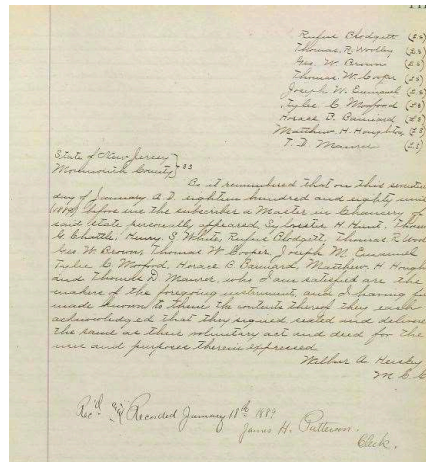 Rufus Blodgett (L.S)
Thomas. R. Woolley (L.S)
Geo. W. Brown (L.S)
Thomas. W. Cooper (L.S)
Joseph W. Emanuel (L.S)
Tylee C. (L.S)
Horace B. (L.S)
Matthew. H. Houghton (L.S)
T. D. Maurer (L.S)
State of New Jersey
Monmouth County } SS
Be it remembered that on this
day of January A. D. eighteen hundred and eighty nine
(1889) before me the subscriber a Master in Chancery of
said state personally appeared, Sylvester H. Hunt. Thomas
G. Chattle, Henry. J. White, Rufus Blodgett Thomas R
Geo W Brown, Thomas W. Cooper, Joseph M. Emanuel
Tylee C. Horace B Matthew. H.
and Theodore D. Maurer, who I am satisfied are the
makers of the foregoing instrument, and I having
made known to them the contents thereof they each
acknowledged that they signed sealed and
the same as their voluntary act and deed for the
uses and purposes therein expressed
Wilbur A.
M C C
Rec'd and Recorded January 18th 1889
James H. Patterson.
Clerk.